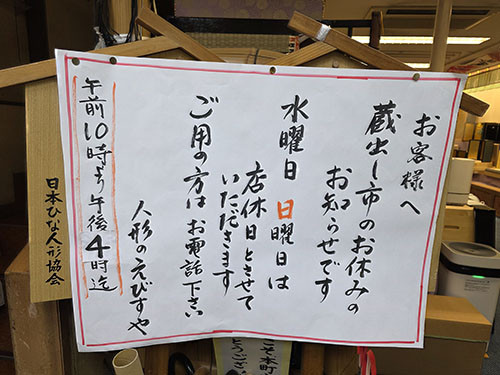 お客様へ
蔵出し市のお休みの
お知らせです
水曜日 日曜日は
店休日とさせて
いただきます
ご用の方はお電話下さい
人形のえびすや
午前10時より午後4時迄
日本ひな人形協会